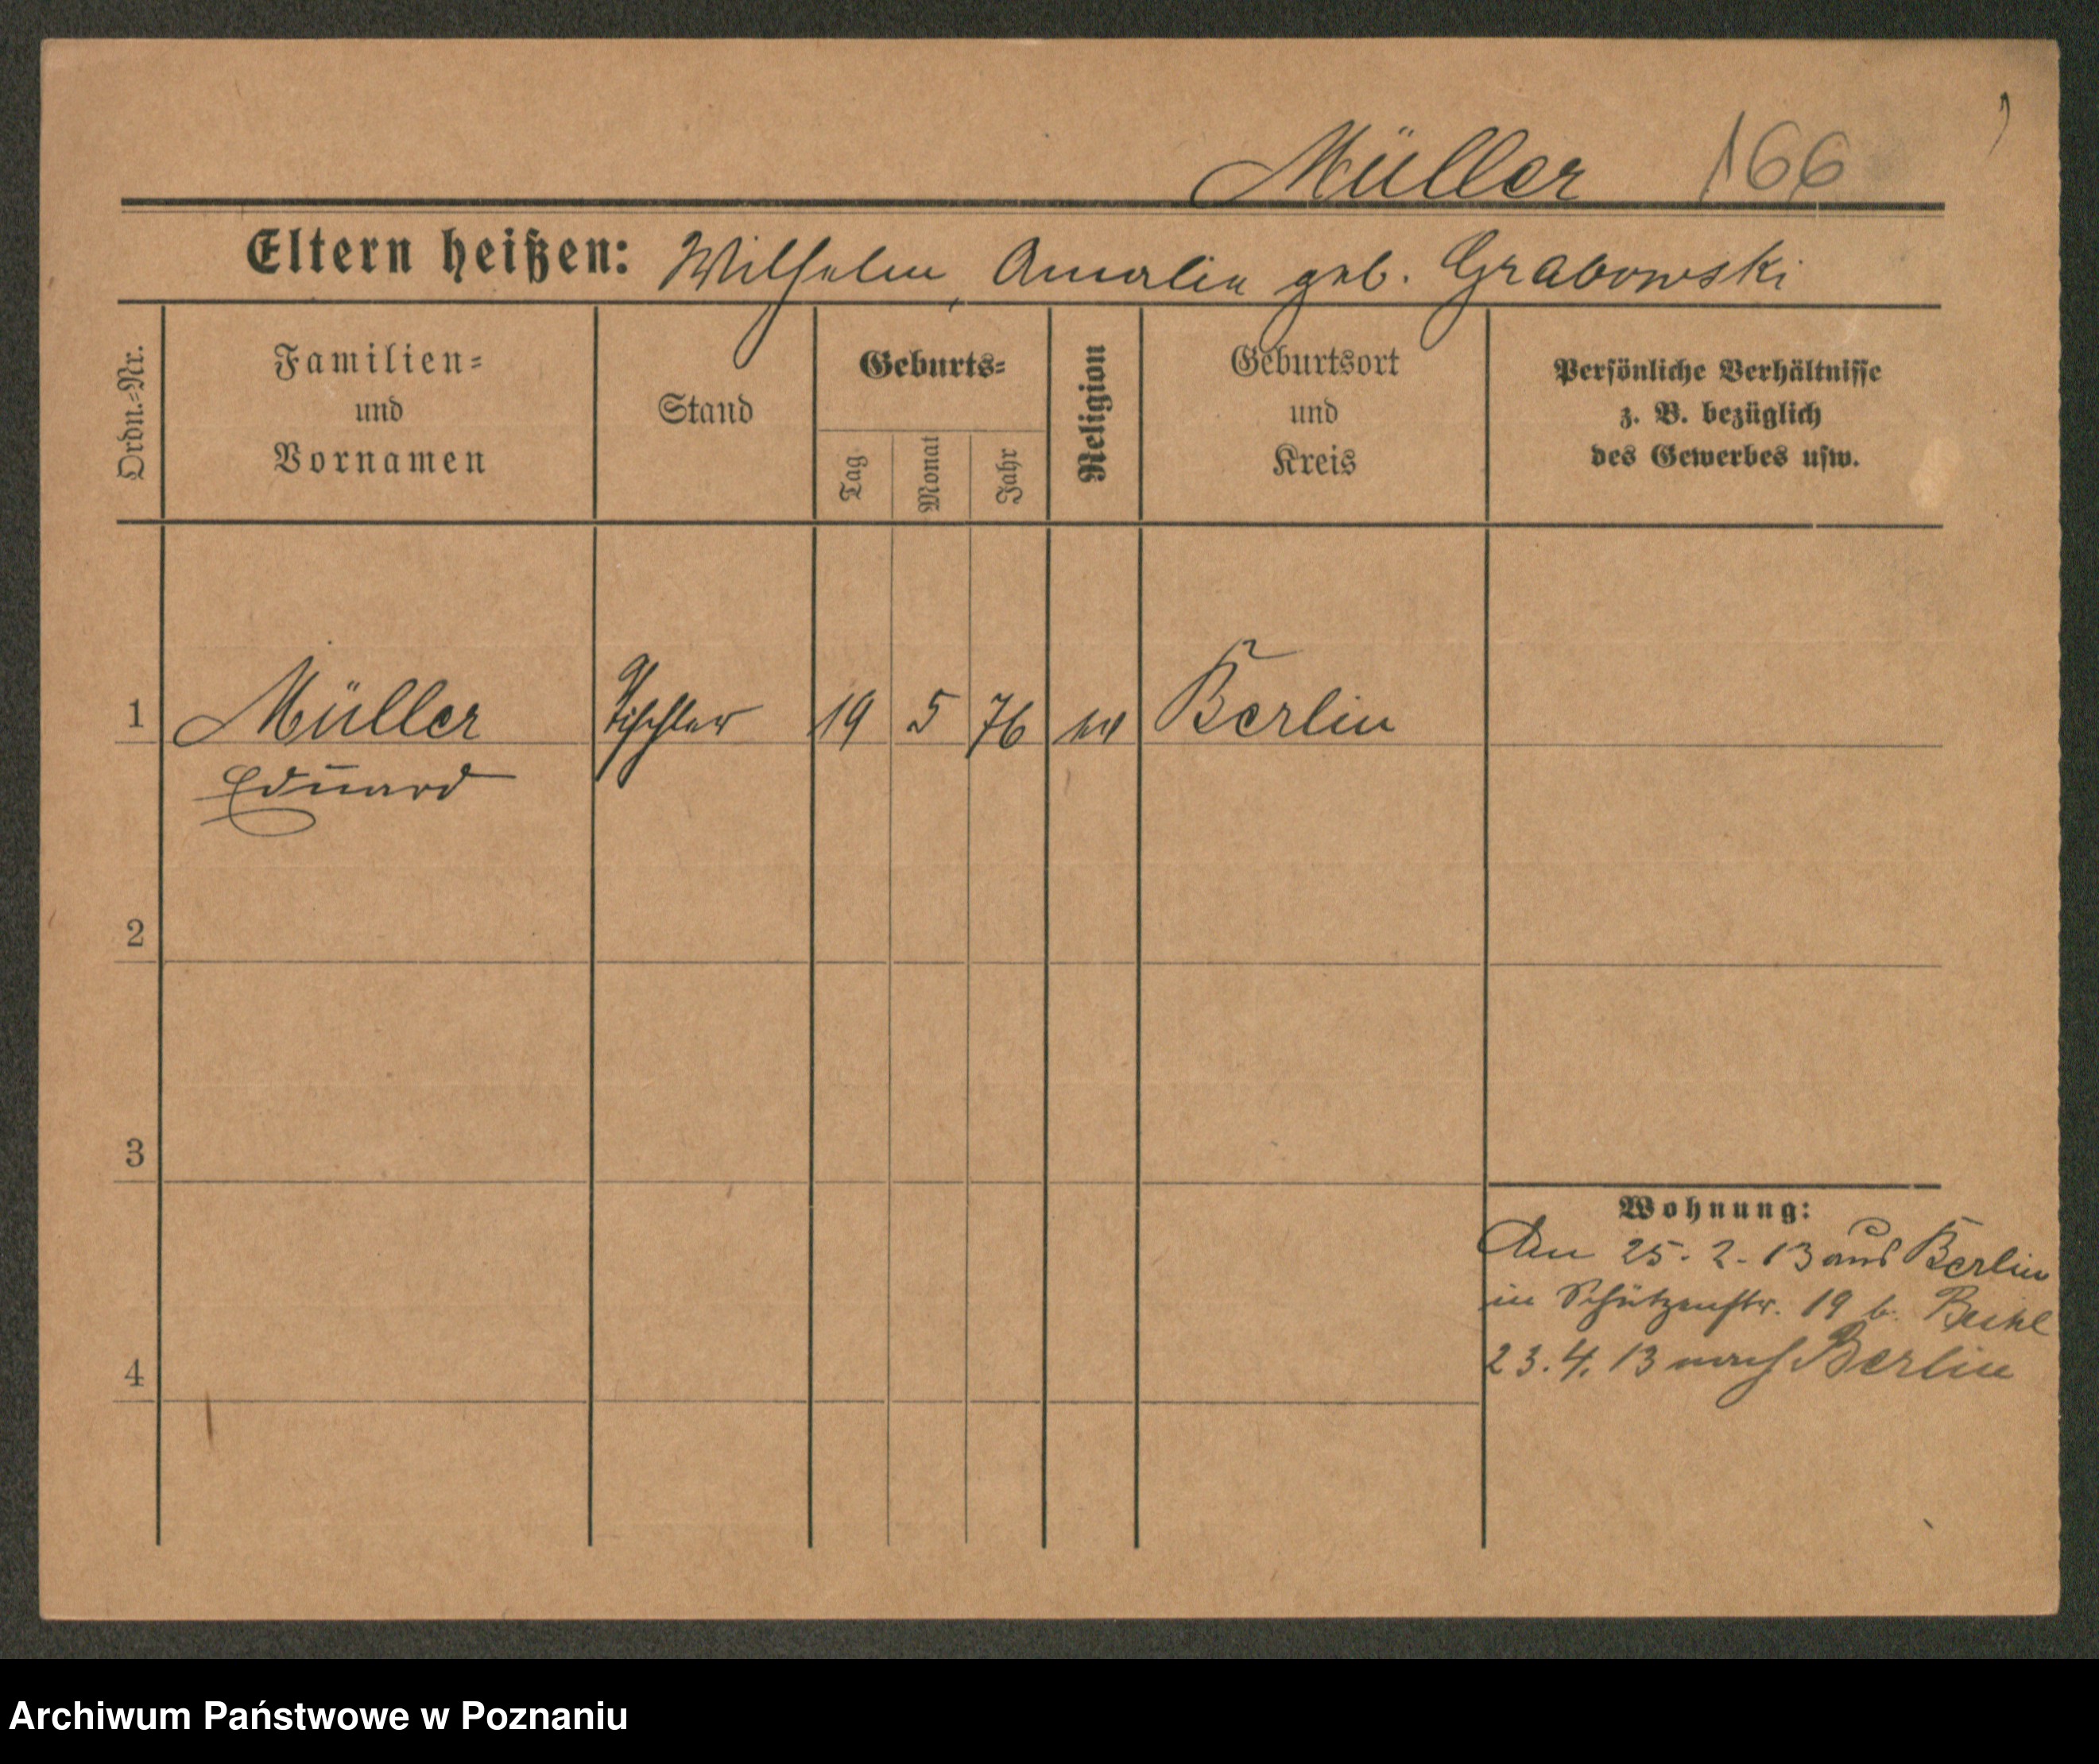 Müller 166
Eltern heißen: Wilhelm, Amalie geb. Grabowski
Ordn.=Nr.
Familien=
und
Vornamen
Stand
Geburts=
Tag
Monat
Jahr
Religion
Geburtsort
und
Kreis
Persönliche Verhältnisse
z. B. bezüglich
des Gewerbes usw.
1 Müller Tischler 19 5 76 ev Berlin
Eduard
2
3
4
Wohnung:
25. 2. 13 aus Berlin
in Schützenstr. 19 b.
23. 4. 13 nach Berlin
Archiwum Państwowe w Poznaniu